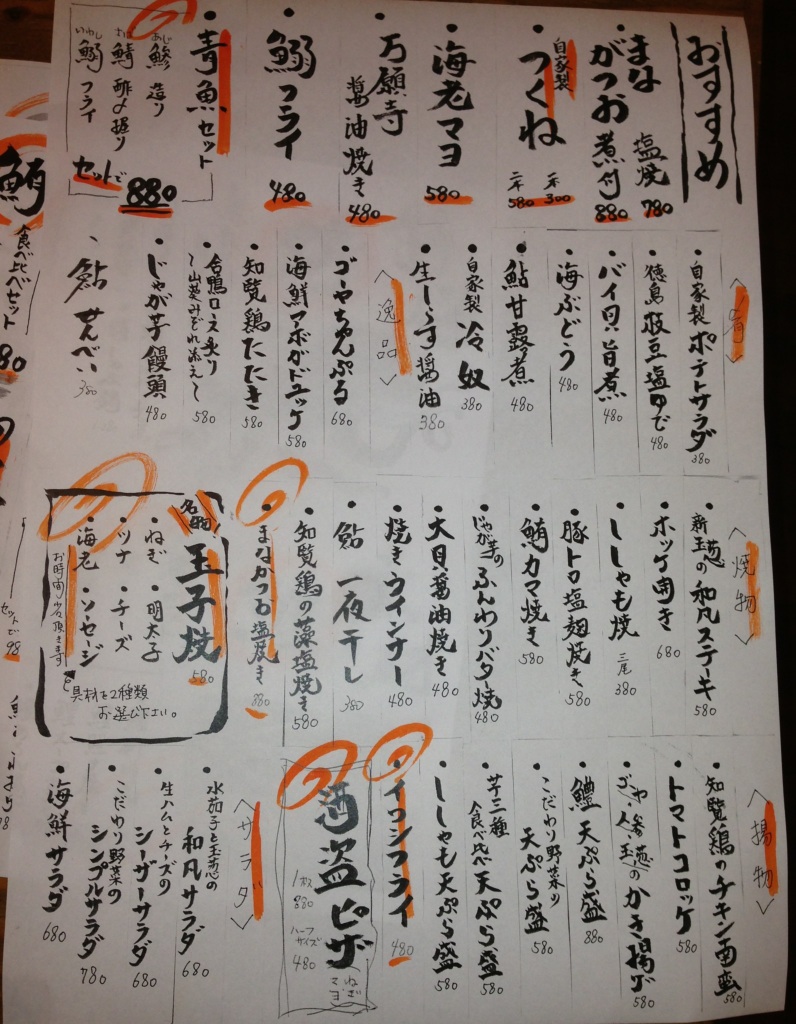 おすすめ
・まながつお 塩焼 780
煮付 880
・自家製 つくね 一本 300
二本 580
・海老マヨ 580
・万願寺 醤油焼き 480
・鰯フライ 480
・青魚セット
あじ 鯵 造り
さば 鯖 酢〆握り
いわし 鰯 フライ
セットで 880
〈肴〉
・自家製 ポテトサラダ 380
・徳島 枝豆塩ゆで 480
・バイ貝旨煮 480
・海ぶどう 480
・鮎甘露煮 480
・自家製 冷奴 380
・生しらす醤油 380
〈逸品〉
・ゴーヤちゃんぷる 680
・海鮮マーボがドュッケ 580
・知覧鶏たたき 580
・合鴨ロース炙り
〜山葵みぞれ添え〜 580
・じゃが芋饅頭 480
・鮎せんべい 380
〈焼物〉
・新玉葱の和風ステーキ 580
・ホッケ開き 680
・ししゃも焼 三尾 380
・豚トロ塩麹焼き 580
・鮪カマ焼き 580
・じゃが芋のふんわりバター焼 480
・大貝醤油焼き 480
・焼きウインナー 480
・鮎 一夜干し 380
・知覧鶏の藻塩焼き 580
・まながつお塩焼き 880
名物! 玉子焼 580
・ねぎ ・明太子
・ツナ ・チーズ
・海老 ・ソーセージ
お時間少々頂きます
具材を2種類
お選び下さい。
〈揚物〉
・知覧鶏のチキン南蛮 580
・トマトコロッケ 580
・ゴーヤ・人参・玉葱のかき揚げ 580
・鱧天ぷら盛 880
・こだわり野菜の天ぷら盛 580
・芋三種食べ比べ天ぷら盛 580
・ししゃも天ぷら盛 580
・イワシフライ 480
酒盗ピザ
1枚 880
ハーフサイズ 480
ねぎマヨ
〈サラダ〉
・水茄子と玉葱の和風サラダ 680
・生ハムとチーズのシーザーサラダ 680
・こだわり野菜のシンプルサラダ 780
・海鮮サラダ 680
鮪
食べ比べセット
セットで 98